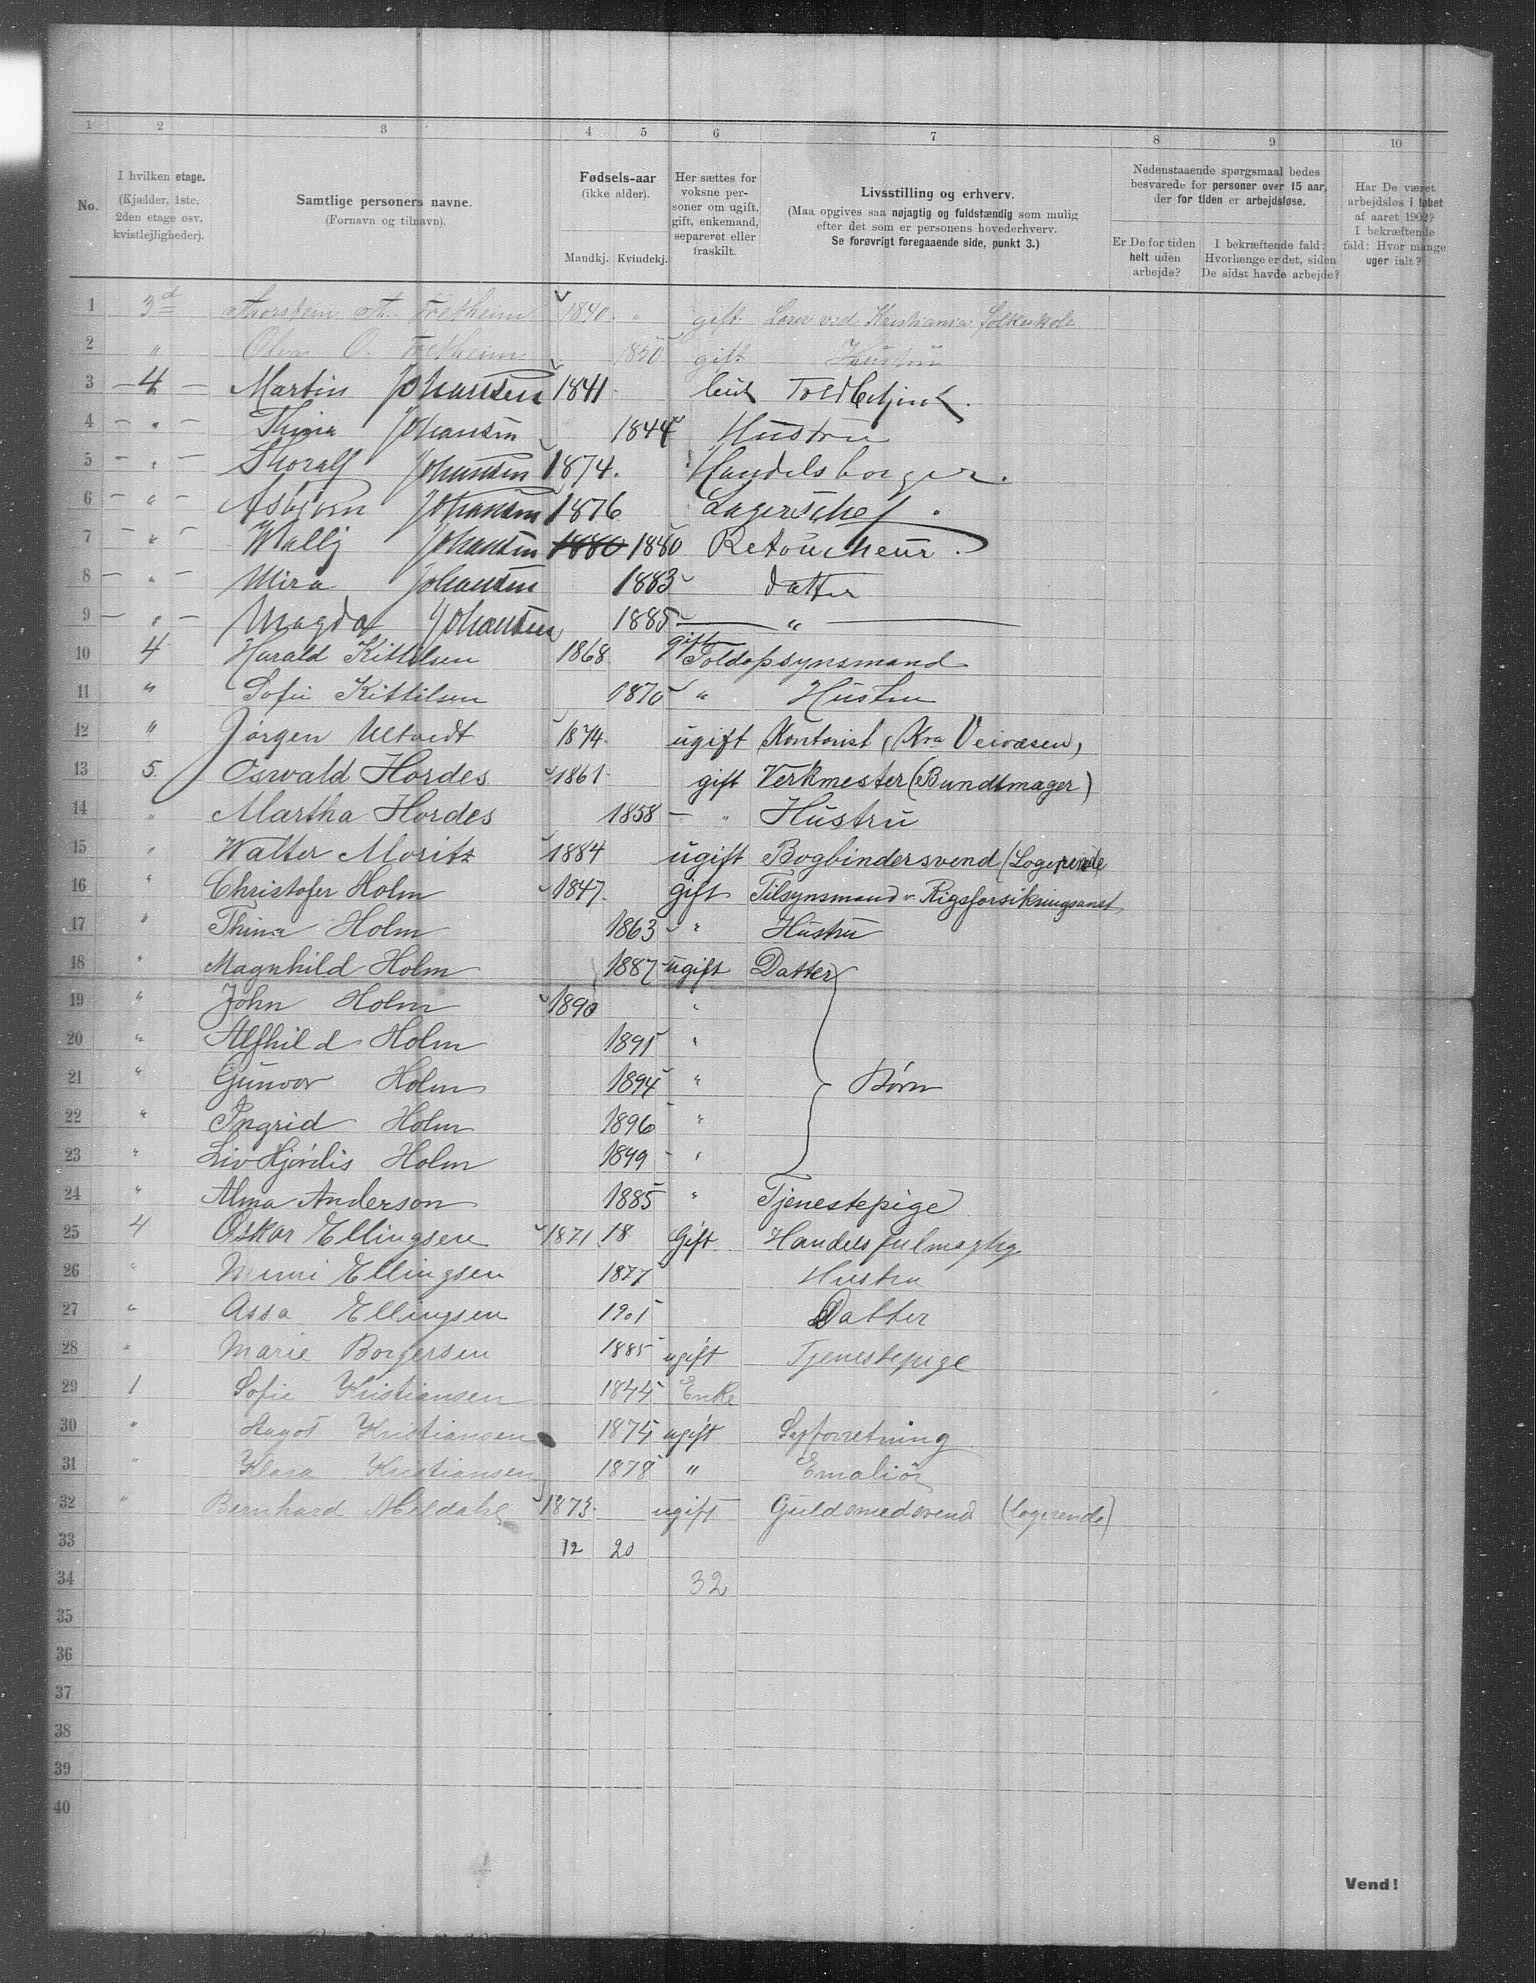 1 2 3 4 5 6 7 8 9 10
No.
I hvilken etage.
(Kjælder, 1ste,
2den etage osv.
kvistlejligheder).
Samtlige personers navne.
(Fornavn og tilnavn).
Fødsels-aar
(ikke alder).
Mandkj. Kvindekj.
Her sættes for
voksne per-
soner om ugift,
gift, enkemand,
separeret eller
fraskilt.
Livsstilling og erhverv.
(Maa opgives saa nøjagtig og fuldstændig som mulig
efter det som er personens hovederhverv.
Se forøvrigt foregaaende side, punkt 3.)
Nedenstaaende spørgsmaal bedes
besvarede for personer over 15 aar,
der for tiden er arbejdsløse.
Er De for tiden
helt uden
arbejde?
I bekræftende fald:
Hvorlænge er det, siden
De sidst havde arbejde?
Har De været
arbejdsløs i løbet
af aaret 1902?
I bekræftende
fald: Hvor mange
uger ialt?
1 3d Thorstein Th. Fretheim 1840 " gift Lærer ved Kristiania Folkeskole
2 " Olea O. Fretheim 1850 gift Hustru
3 – 4 – Martin Johansen 1841 Toldbetjent.
4 – " – Thina Johansen 1844 Hustru
5 – " – Thoralf Johansen 1874. Handelsborger.
6 – " – Asbjørn Johansen 1876 Lagerschef.
7 " Wally Johansen 1880 1880 Retoucheur.
8 – " – Mira Johansen 1883 datter
9 – " – Magda Johansen 1885 – " –
10 4 Harald Kittilsen 1868 gift Toldopsynsmand
11 " Sofie Kittilsen 1870 " Hustru
12 " Jørgen Ultvedt 1874 ugift Kontorist, Kra Veivæsen,
13 5. Oswald Hordes 1861 gift Verkmester (Bundtmager)
14 " Martha Hordes 1858 – " Hustru
15 " Walter Moritz 1884 ugift Bogbindersvend (Logerende
16 " Christofer Holm 1847. gift Tilsynsmand v. Rigsforsikringsanst.
17 " Thina Holm 1863 – " Hustru
18 " Magnhild Holm 1887 ugift Datter
19 " John Holm 1890 "
20 " Alfhild Holm 1891 "
21 " Gunvor Holm 1894 " Børn
22 " Ingrid Holm 1896 "
23 " Liv Hjørdis Holm 1899 – "
24 " Alma Anderson 1885 " Tjenestepige
25 4 Oskar Ellingsen 1871 18 Gift Handelsfulmægtig
26 " Mimi Ellingsen 1877 Hustru
27 " Assa Ellingsen 1901 Datter
28 " Marie Borgersen 1885 ugift Tjenestepige
29 1 Sofie Kristiansen 1845 Enke
30 " Kristiansen 1875 ugift Syforretning
31 " Klara Kristiansen 1878 " Emaliør
32 " Bernhard Meldahl 1873 ugift Guldsmedsvend (logerende)
33 12 20
34 32
35
36
37
38
39
40
Vend!